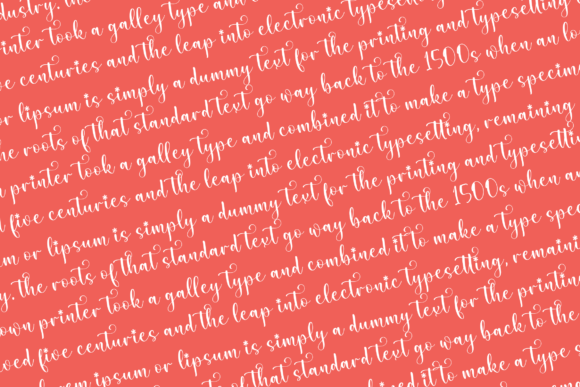 dustry, the
rinter took a galley type and
ve centuries and the leap into electronic typesetting
or lipsum is simply a dummy text for the printing and typesetting
he roots of that standard text go way back to the 1500s when an lo
printer took a galley type and combined it to make a type specim
d five centuries and the leap into electronic typesetting, remaining
um or lipsum is simply a dummy text for the printing and typesettin
y, the roots of that standard text go way back to the 1500s when an
own printer took a galley type and combined it to make a type spec
ved five centuries and the leap into electronic typesetting, remaini
lorem ipsum or lipsum is simply a dummy text for the printin
roots of that standard text go way back to the
type and combined it to make a type s